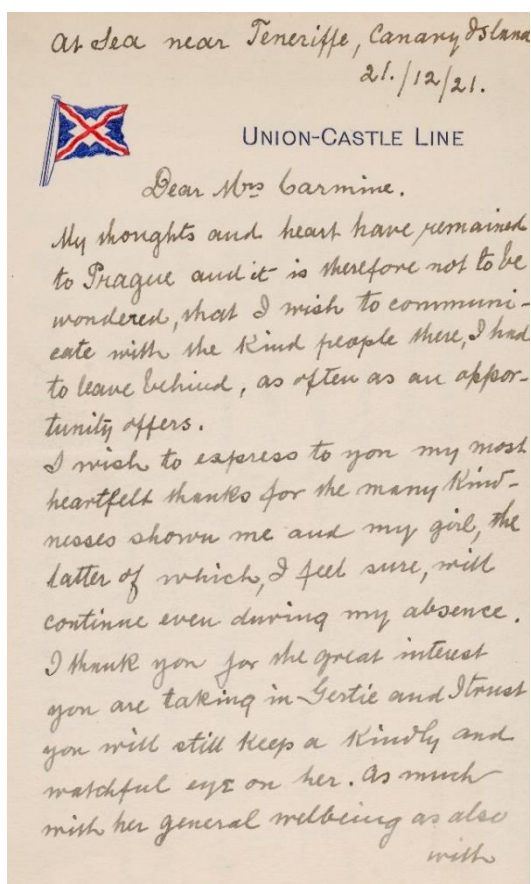 At Sea near Teneriffe, Canary Island
21./12/21.
UNION-CASTLE LINE
Dear Mrs Carmine.
My thoughts and heart have remained
to Prague and it is therefore not to be
wondered, that I wish to communi-
cate with the kind people there, I had
to leave behind, as often as an oppor-
tunity offers.
I wish to express to you my most
heartfelt thanks for the many kind-
nesses shown me and my girl, the
latter of which, I feel sure, will
continue even during my absence.
I thank you for the great interest
you are taking in Gertie and I trust
you will still keep a kindly and
watchful eye on her. As much
with her general welbeing as also
with